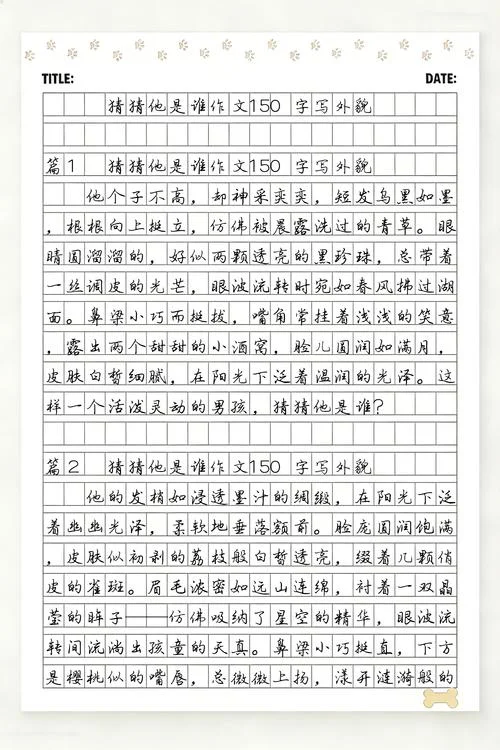 TITLE: DATE:
猜猜他是谁作文150 字写外貌
篇1 猜猜他是谁作文150 字写外貌
他个子不高，却神采奕奕，短发乌黑如墨
，根根向上挺立，仿佛被晨露洗过的青草。眼
睛圆溜溜的，好似两颗透亮的黑珍珠，总带着
一丝调皮的光芒，眼波流转时宛如春风拂过湖
面。鼻梁小巧而挺拔，嘴角常挂着浅浅的笑意
，露出两个甜甜的小酒窝，脸儿圆润如满月，
皮肤白皙细腻，在阳光下泛着温润的光泽。这
样一个活泼灵动的男孩，猜猜他是谁?
篇2 猜猜他是谁作文150 字写外貌
他的发梢如浸透墨汁的绸缎，在阳光下泛
着幽幽光泽，柔软地垂落额前。脸庞圆润饱满
，皮肤似初剥的荔枝般白皙透亮，缀着几颗俏
皮的雀斑。眉毛浓密如远山连绵，衬着一双晶
莹的眸子——仿佛吸纳了星空的精华，眼波流
转间流淌出孩童的天真。鼻梁小巧挺直，下方
是樱桃似的嘴唇，总微微上扬，漾开涟漪般的